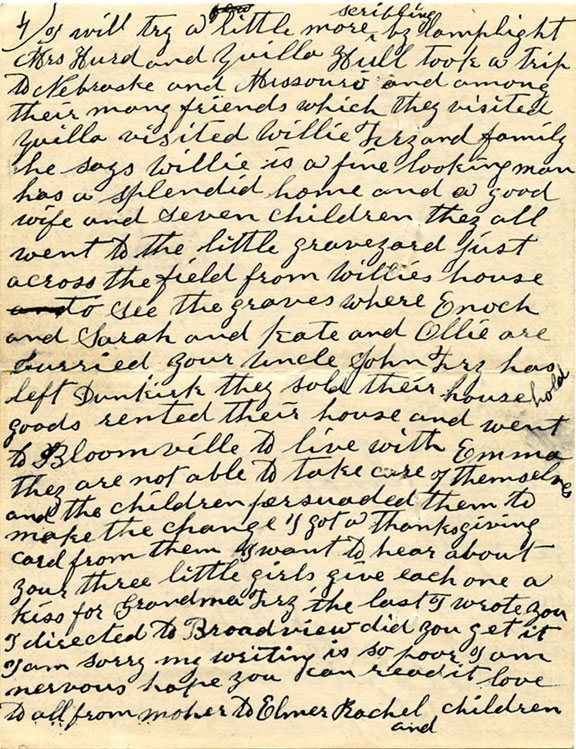 will try a little more scribbling by lamplight
Mrs Hurd and Quilla Hull took a trip
to Nebraske and Missouri and among
their many friends which they visited
Quilla visited Willie Fry and family
he says Willie is a fine looking man
has a splendid home and a good
wife and seven children they all
went to the little graveyard just
across the field from Willies house
and to see the graves where Enoch
and Sarah and Kate and Ollie are
burried your uncle John Fry has
left Dunkirk they sold their household
goods rented their house and went
to Bloomville to live with Emma
they are not able to take care of themselves
and the children persuaded them to
make the change I got a Thanksgiving
card from them I want to hear about
your three little girls give each one a
kiss for Grandma Fry the last I wrote you
I directed to Broadview did you get it
I am sorry my writing is so poor I am
nervous hope you can read it love
to all from moher to Elmer Rachel and children